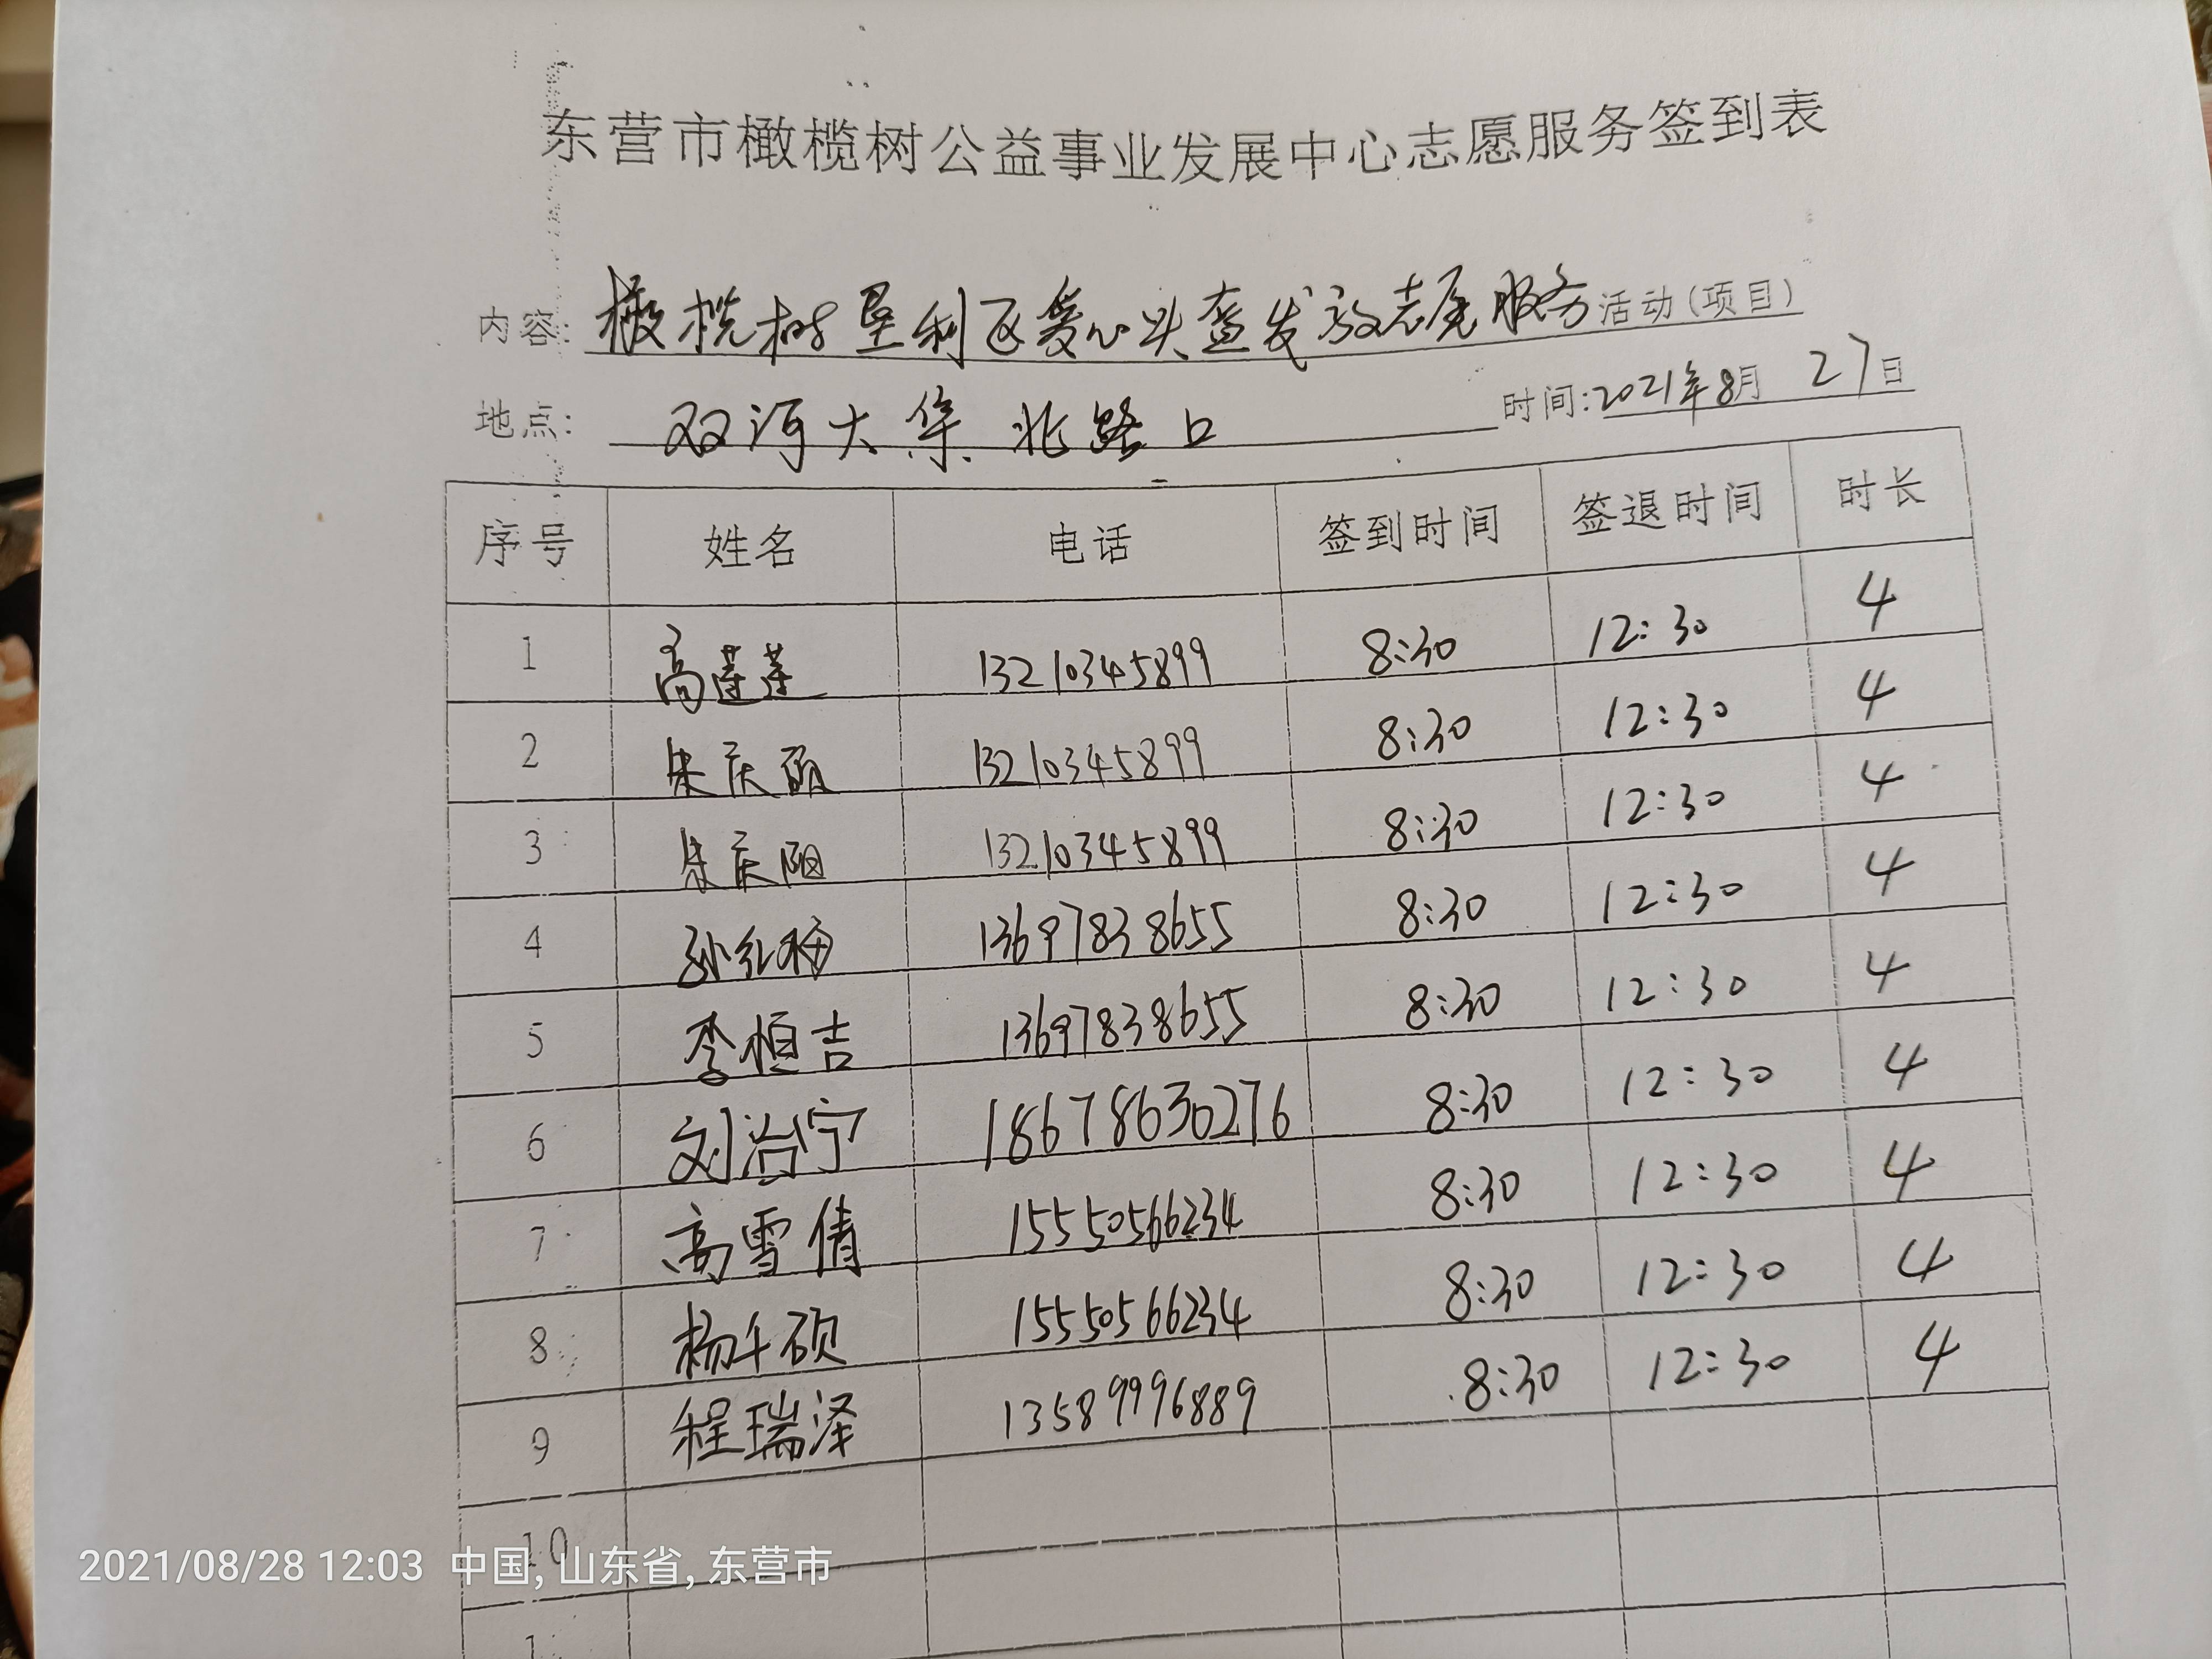 东营市橄榄树公益事业发展中心志愿服务签到表
内容: 橄榄树垦利区爱心头盔发放志愿服务活动(项目)
地点: 双河大集北路口 时间:2021年8月27日
序号 姓名 电话 签到时间 签退时间 时长
1 高莲莲 13210345899 8:30 12:30 4
2 朱庆 13210345899 8:30 12:30 4
3 朱庆阳 13210345899 8:30 12:30 4
4 孙红梅 13697838655 8:30 12:30 4
5 李恒吉 13697838655 8:30 12:30 4
6 刘治宁 18678630276 8:30 12:30 4
7 高雪倩 15550566234 8:30 12:30 4
8 杨千硕 15550566234 8:30 12:30 4
9 程瑞泽 13589996889 8:30 12:30 4
10
2021/08/28 12:03 中国, 山东省, 东营市